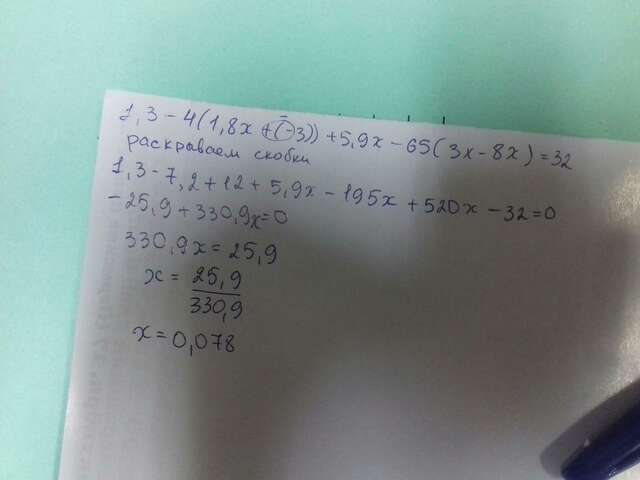 1,3-4(1,8x+(-3))+5,9x-65(3x-8x)=32
раскраваем скобки
1,3-7,2+12+5,9x-195x+520x-32=0
-25,9+330,9x=0
330,9x=25,9
x=25,9/330,9
x=0,078